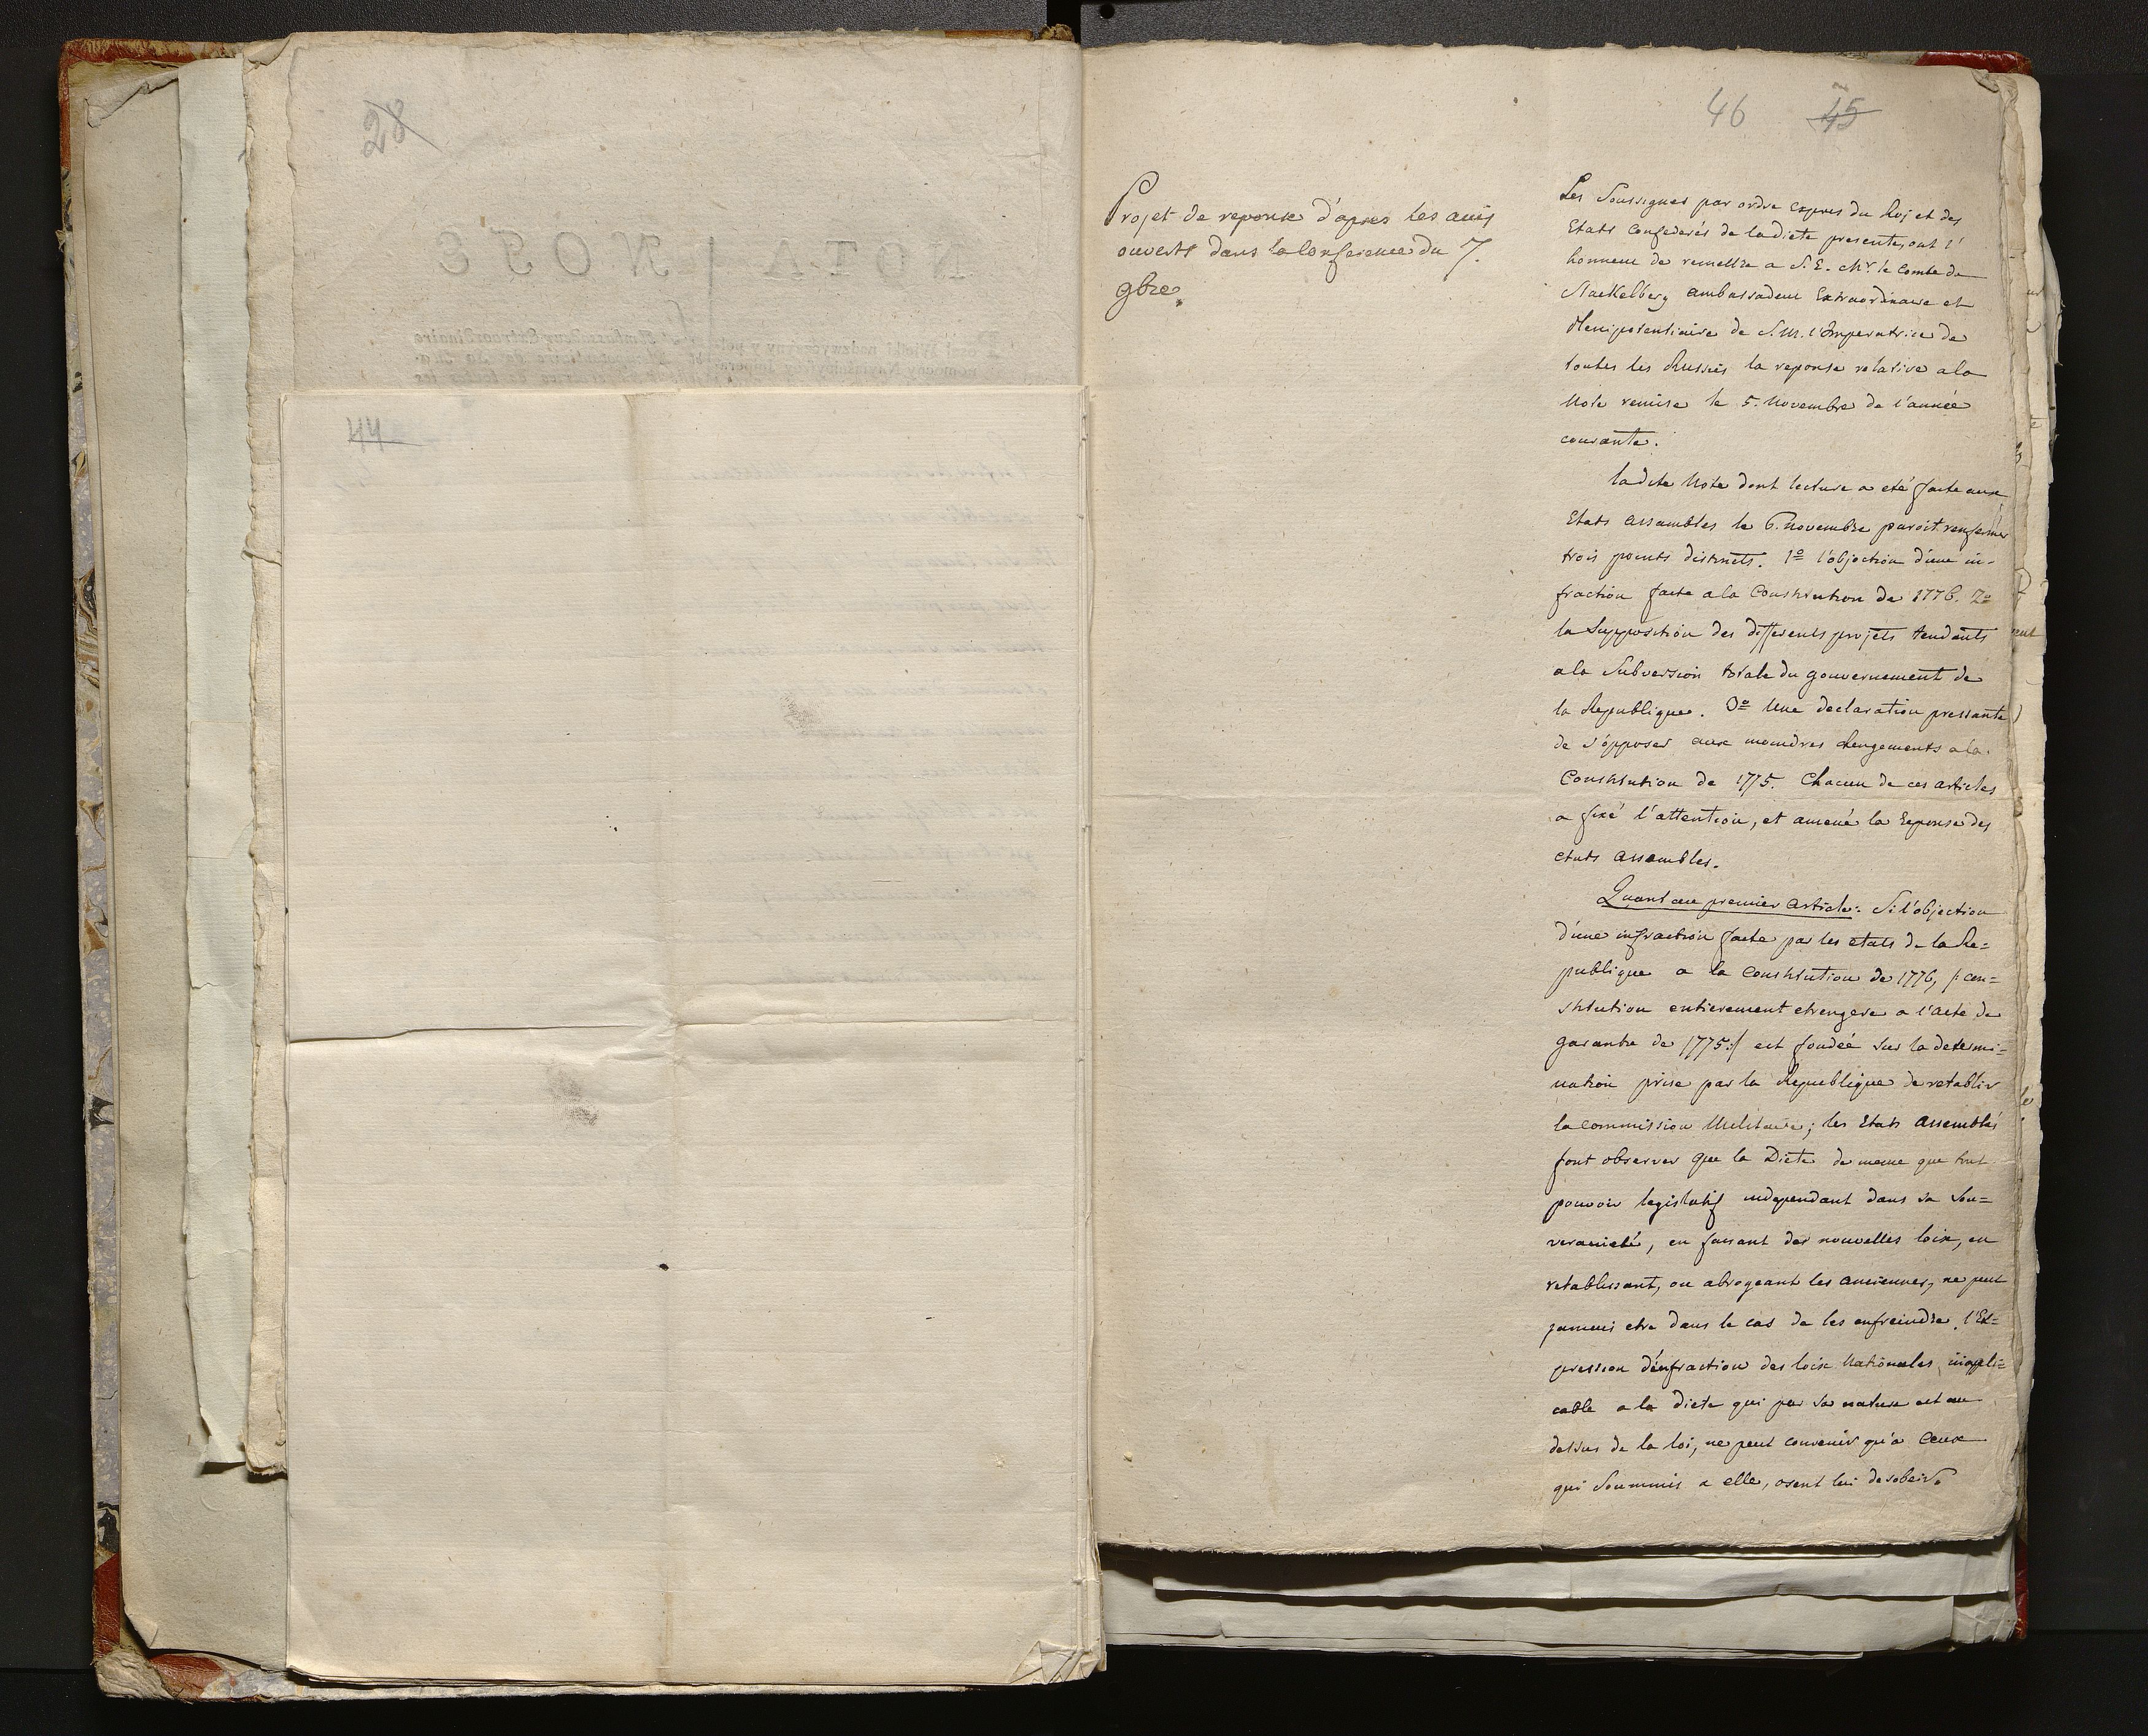 28
44
46 45
Projet de reponse d'apres les avis
ouverts dans la Conference du 7.
9bre.
Les Soussignes par ordre expres du Roj et des
Etats confederés de la diete presente, ont l'
honneur de remettre a S. E. Mr. le Comte de
Stackelberg Ambassadeur Extraordinaire et
Plenipotentiaire de S. M. l'Imperatrice de
toutes les Russies la reponse relative a la
Note remise le 5. Novembre de l'année
courante.
la dite Note dont lecture a eté faite aux
Etats assembles le 6. Novembre paroit renfermer
trois points distincts. 1º l'objection d'une in-
fraction faite a la Constitution de 1776. 2º
la Supposition des differents projets tendants
a la Subversion totale du gouvernement de
la Republique. 3º Une declaration pressante
de s'opposer aux moindres changements a la
Constitution de 1775. Chacun de ces articles
a fixé l'attention, et amené la Reponse des
etats assembles.
Quant au premier article: Si l'objection
d'une infraction faite par les etats de la Re=
publique a la Constitution de 1776, /: con=
stitution entierement etrangere a l'acte de
garantie de 1775:/ est fondée sur la determi=
nation prise par la Republique de retablir
la commission Militaire; les Etats Assemblés
font observer que la Diete de meme que tout
pouvoir legislatif independant dans sa Sou=
veraineté, en faisant des nouvelles loix, en
retablissant, ou abrogeant les anciennes, ne peut
jamais etre dans le cas de les enfreindre. l'Ex=
pression d'enfraction des loix Nationales, inappli=
cable a la diete qui par sa nature est au
dessus de la loi, ne peut convenir qu'a Ceux
qui Soummis a elle, osent lui desobeir.